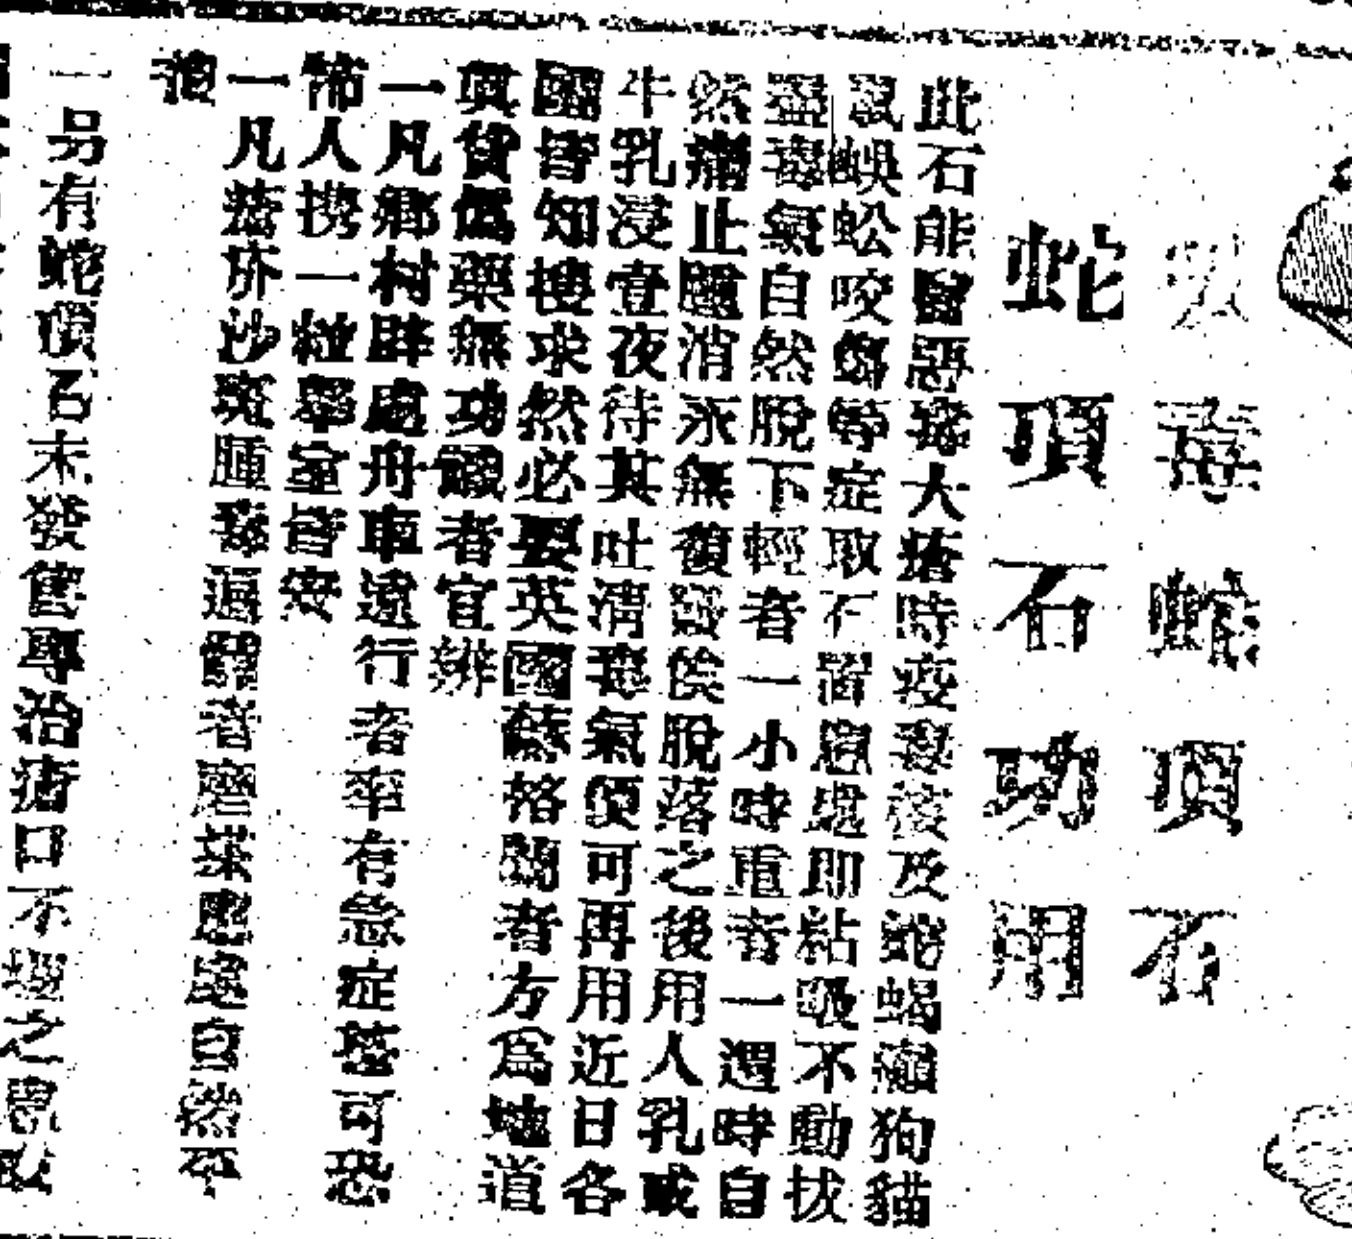 吸毒蛇項石
蛇項石功用
此石能醫惡瘡大瘡時疫毒核及蛇蝎癲狗貓
鼠蜈蚣咬傷等症取石置患處即粘吸不動拔
盡毒氣自然脫下輕者一小時重者一週時自
然痛止腫消永無復發俟脫落之後用人乳或
牛乳浸壹夜待其吐清毒氣便可再用近日各
國皆知搜求然必要英國蘇格蘭者方為地道
真貨偽藥無功識者宜辨
一凡鄉村辟處舟車遠行者卒有急症甚可恐
怖人携一粒舉室皆安
一凡瘡疥沙斑腫毒遍體者磨茶患處自然平
一另有蛇項石末發售專治瘡口不埋之患